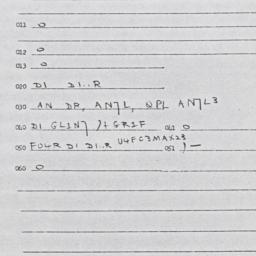 011 0
012 0
013 0
020 DI DI..R
030 AN DR, AN7L, QPL AN7L3
040 DI GLIN7 )+GRIF 041 0
050 FOUR DI DI..R U4FC3MAX23 051 )—
060 0